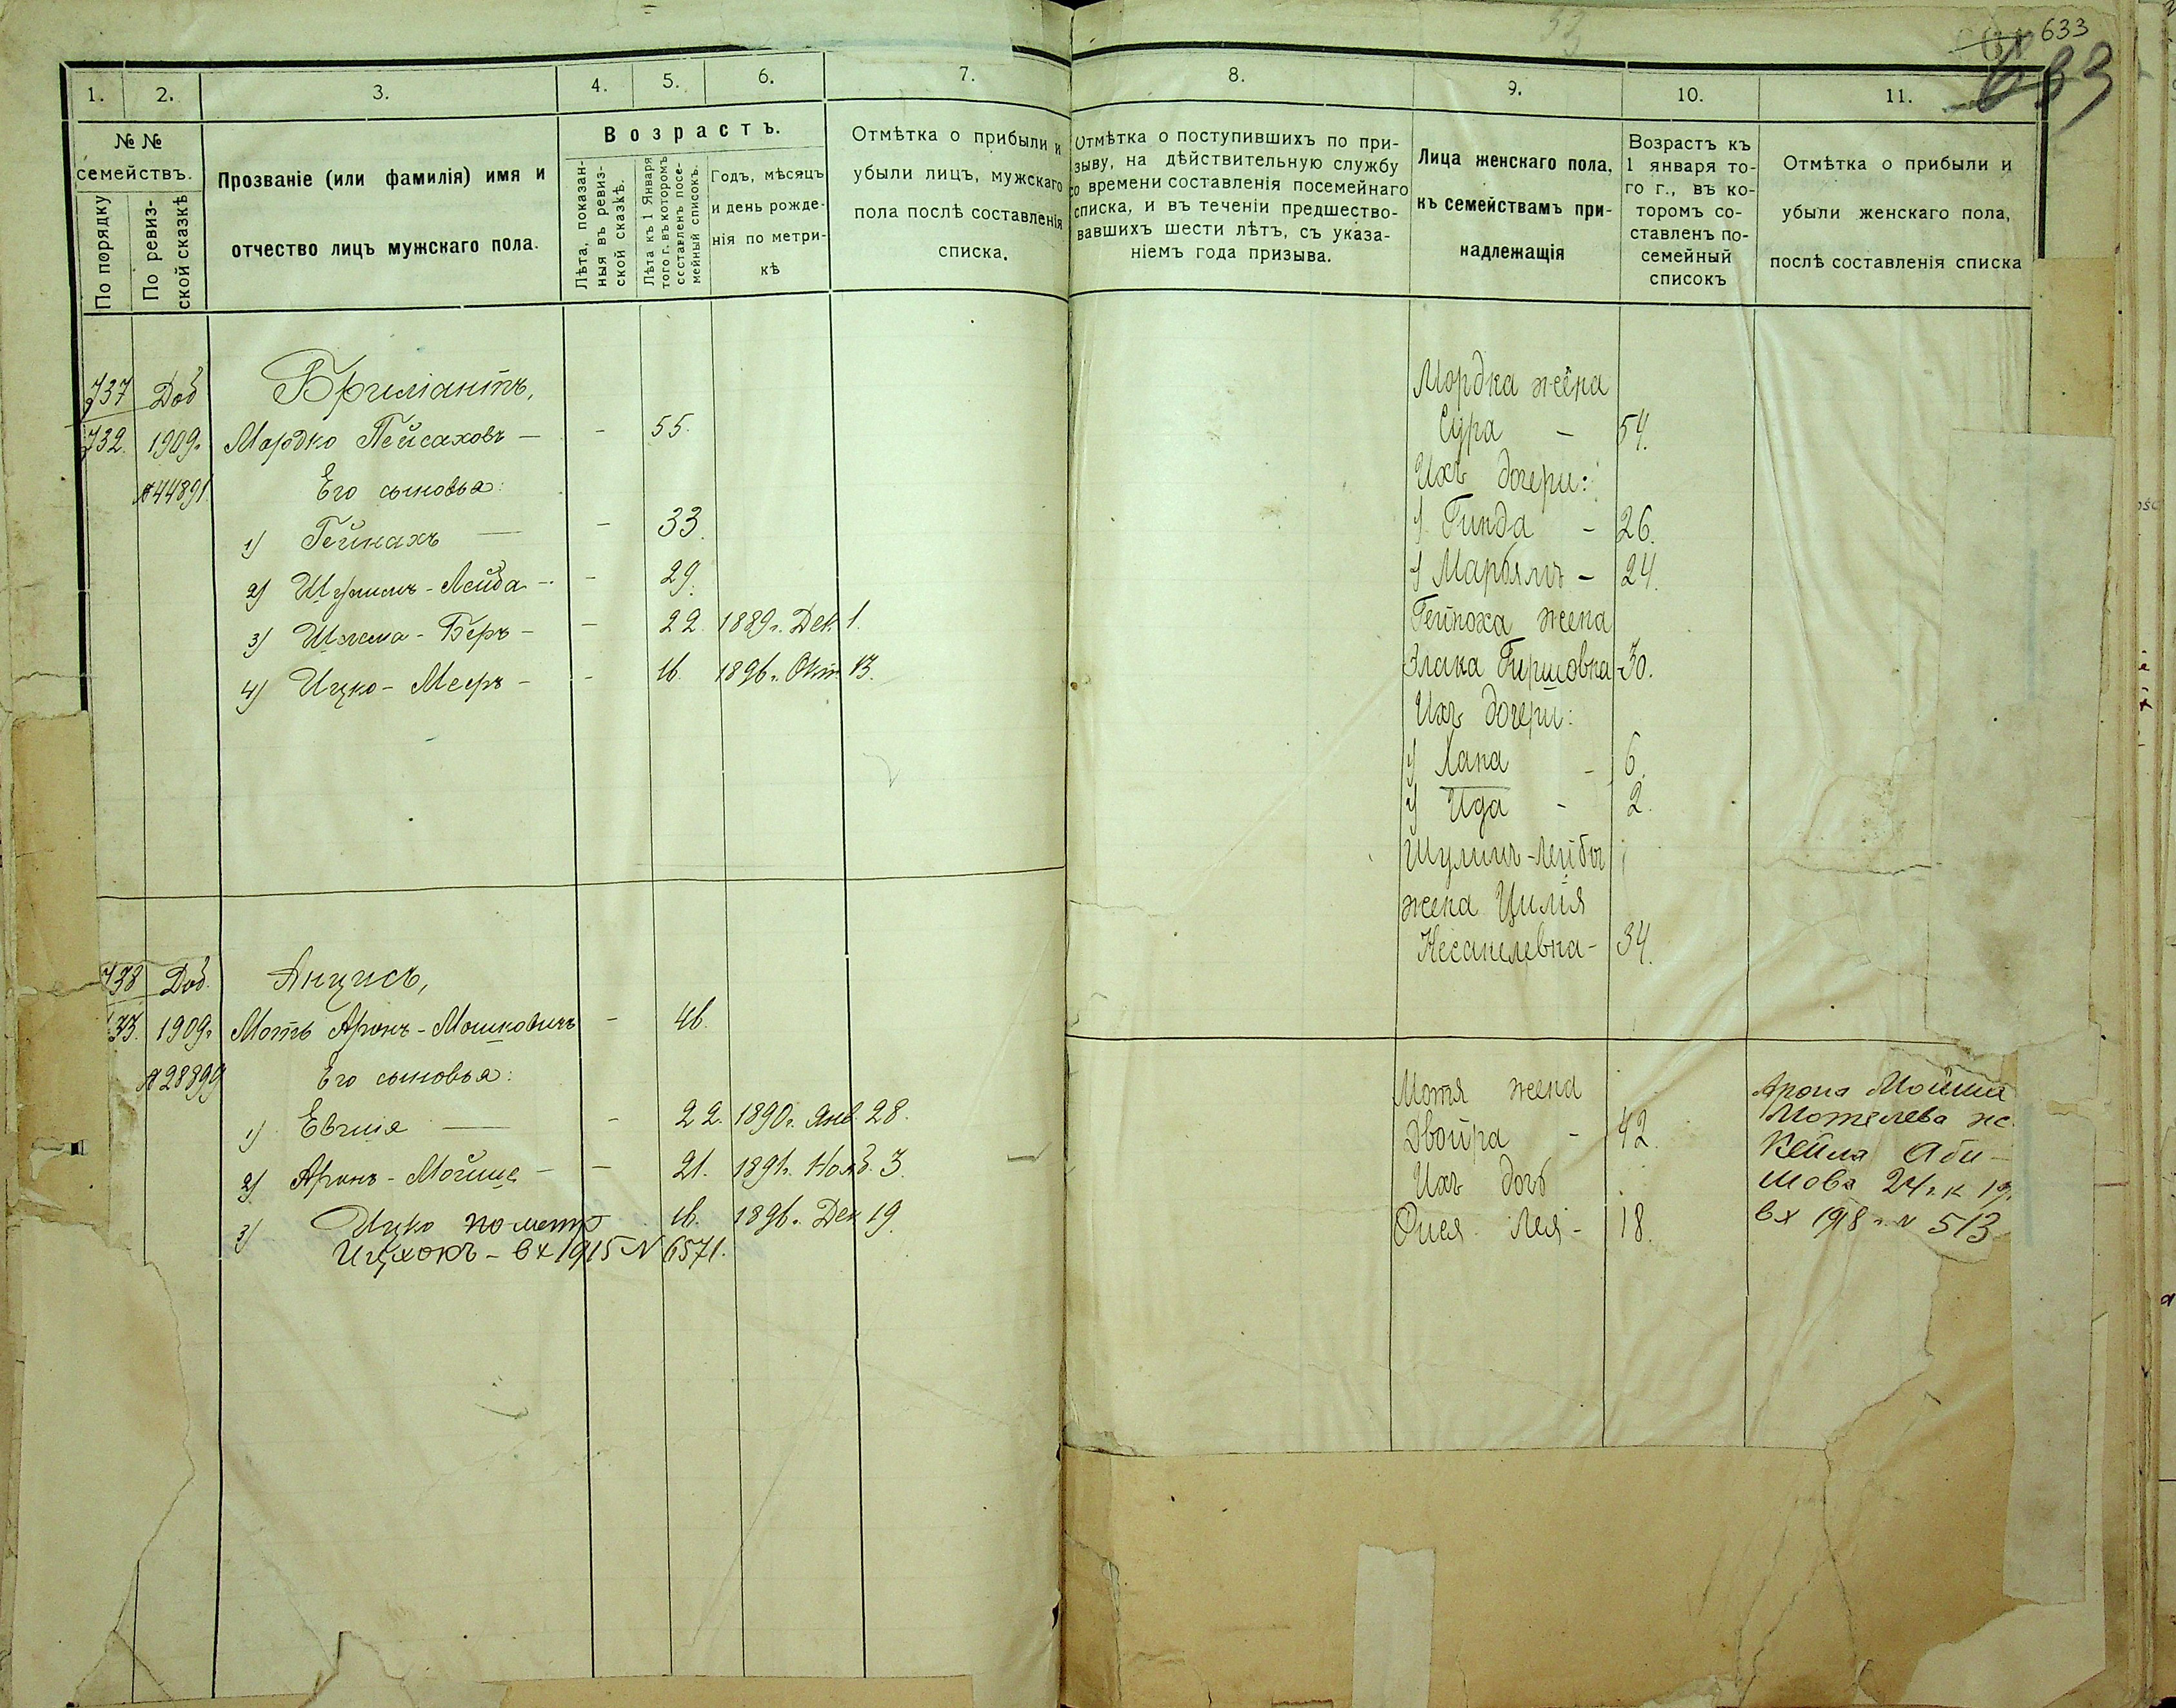 633
633
1.
2.
3.
4.
5.
6.
7.
№ №
семействъ.
По порядку
По ревиз-
ской сказкѣ
Прозваніе (или фамилія) имя и
отчество лицъ мужскаго пола.
Возрастъ.
Лѣта, показан-
ныя въ ревиз-
ской сказкѣ.
Лѣта къ 1 Января
того г. въ которомъ
составленъ посе-
мейный списокъ.
Годъ, мѣсяцъ
и день рожде-
нія по метри-
кѣ
Отмѣтка о прибыли и
убыли лицъ, мужскаго
пола послѣ составленія
списка.
737 Доб Бриліантъ,
732. 1909г. Мордко Пейсаховъ — - 55.
№ 44891 Его сыновья:
1) Гейнахъ — - 33.
2) Шулимъ-Лейба - - 29.
3) Шлема-Беръ - - 22. 1889г. Дек. 1.
4) Ицко-Мееръ - - 16. 1896г. Окт. 13.
738 Доб. Анцисъ,
733. 1909г. Моть Аронъ-Мошковичъ - 46.
№ 28899 Его сыновья:
1) Евгия — - 22. 1890г. Янв. 28.
2) Аронъ-Мойше - - 21. 1891г. Нояб. 3.
3) Ицко по метр 16. 1896г. Дек 19.
Ицхокъ - вх 1915 N 6571.
8.
9.
10.
11.
Отмѣтка о поступившихъ по при-
зыву, на дѣйствительную службу
со времени составленія посемейнаго
списка, и въ теченіи предшество-
вавшихъ шести лѣтъ, съ указа-
ніемъ года призыва.
Лица женскаго пола,
къ семействамъ при-
надлежащія
Возрастъ къ
1 января то-
го г., въ ко-
торомъ со-
ставленъ по-
семейный
списокъ
Отмѣтка о прибыли и
убыли женскаго пола,
послѣ составленія списка
Мордка жена
Сура - 54.
Ихъ дочери:
1) Гинда - 26.
2) Марьямъ - 24.
Гейноха жена
Злака Гиршовна 30.
Ихъ дочери:
1) Хана - 6.
2) Ида - 2.
Шулимъ-Лейбы
жена Цилія
Несанелевна - 34.
Мотя жена
Двойра - 42.
Ихъ дочь
Лея - 18.
Арона Мойши
Мотелева ж.
Кейла Аби-
мова 24 г. к 19
вх 1918 г. N 513